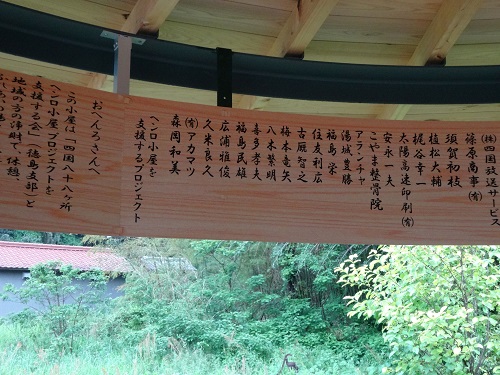 (株)四国放送サービス
篠原商事(有)
須賀初枝
植松大輔
梶谷幸一
太陽高速印刷(有)
安永一夫
こやま整骨院
アランチャ
湯城豊勝
福島栄
住友利広
古厩智之
梅本竜矢
八木繁明
喜多孝夫
福島民雄
広浦雅俊
久米良久
(有)アカマツ
森岡和美
ヘンロ小屋を
支援するプロジェクト
おへんろさんへ
この小屋は「四国八十八ケ所
ヘンロ小屋プロジェクトを
支援する会」(徳島支部)と
地域の方の浄財で、休憩